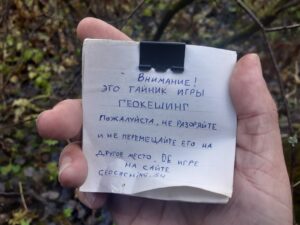 Внимание!
ЭТО ТАЙНИК ИГРЫ
ГЕОКЕШИНГ
Пожалуйста, не разоряйте
и не перемещайте его на
другое место. Об игре
на сайте